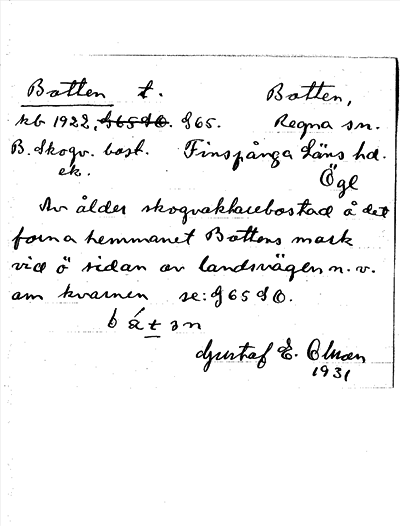 Botten t.
Botten,
kb 1922, S65SO. S65.
Regna sn.
B. Skogv. bost.
Finspånga Läns hd.
ek.
Ögl
Av ålder skogvaktarebostad å det
forna hemmanet Bottens mark
vid ö sidan av landsvägen n. v.
om kvarnen se: S65SO.
Gustaf E. Olson
1931